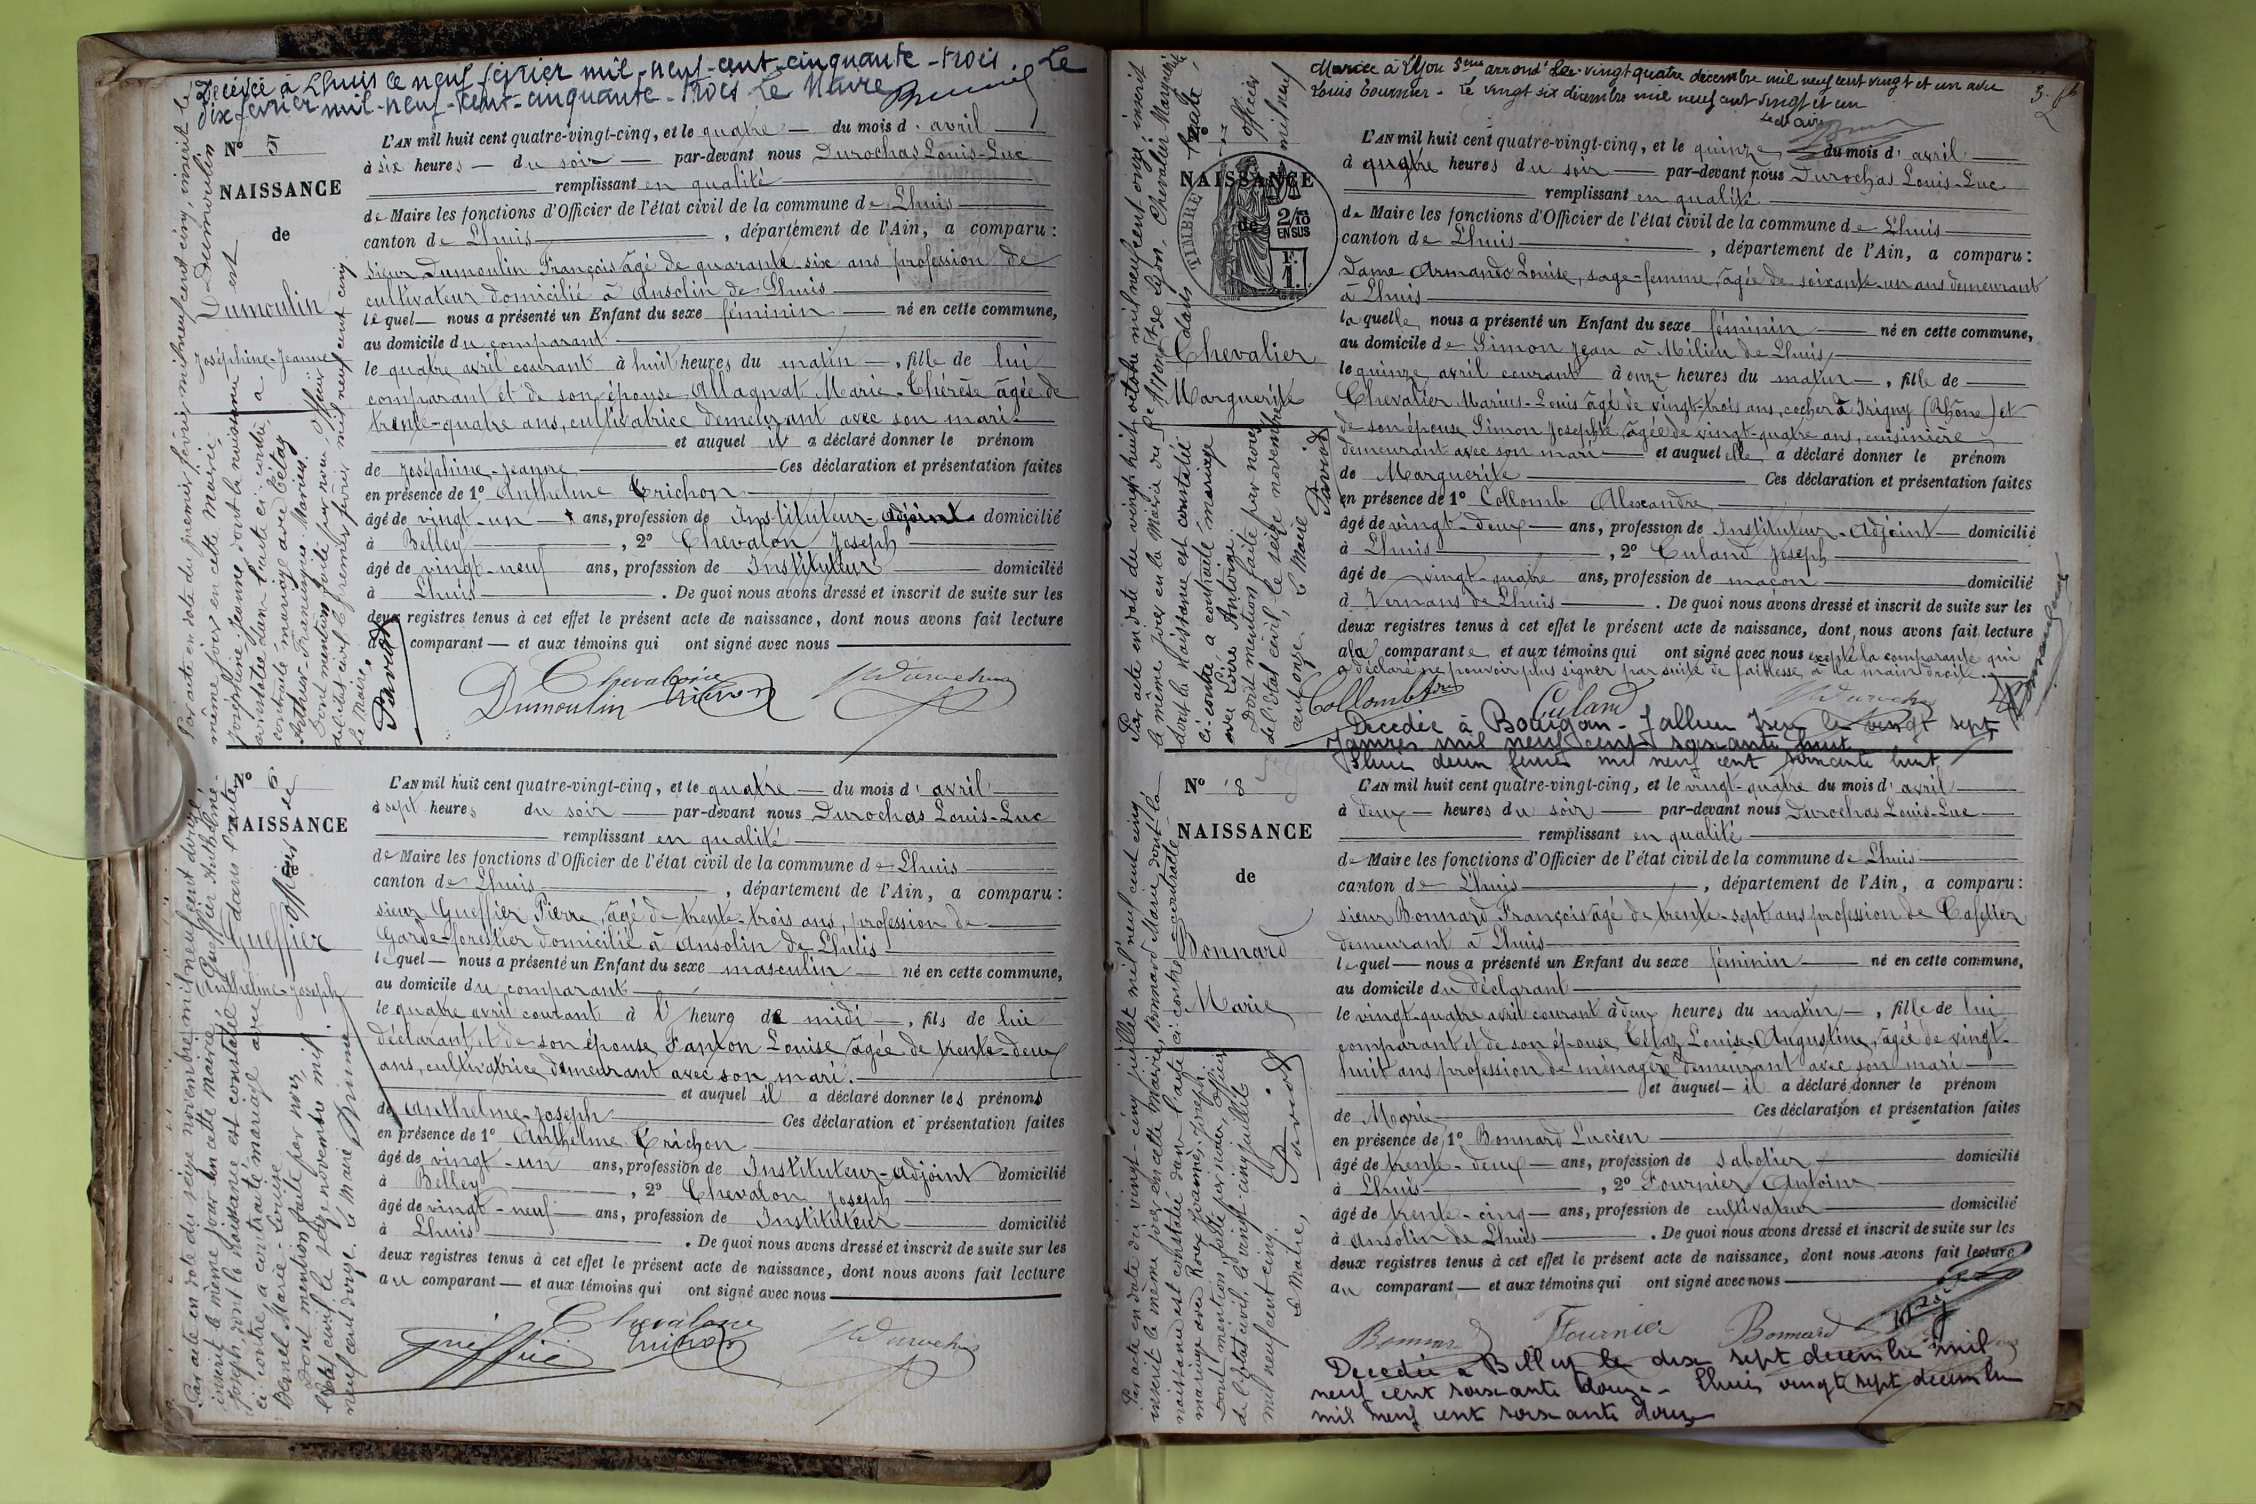 Décédée à Lhuis le neuf février mil-neuf-cent-cinquante-trois. Le
dix février mil-neuf-cent-cinquante-trois Le Maire
N° 5
NAISSANCE
de
Dumoulin
Joséphine-Jeanne
L'AN mil huit cent quatre-vingt-cinq, et le quatre — du mois d'avril
à six heures — du soir — par-devant nous Durochas Louis-Luc
remplissant en qualité
de Maire les fonctions d'Officier de l'état civil de la commune de Lhuis
canton de Lhuis, département de l'Ain, a comparu:
sieur Dumoulin François âgé de quarante-six ans profession de
cultivateur domicilié à Ansolin de Lhuis
lequel — nous a présenté un Enfant du sexe féminin — né en cette commune,
au domicile du comparant
le quatre avril courant à huit heures du matin —, fille de lui
comparant et de son épouse Allagnat Marie-Thérèse âgée de
trente-quatre ans, cultivatrice demeurant avec son mari
et auquel il a déclaré donner le prénom
de Joséphine-Jeanne Ces déclaration et présentation faites
en présence de 1° Anthelme Trichon
âgé de vingt-un — ans, profession de Instituteur-adjoint domicilié
à Belley, 2° Chevalon Joseph
âgé de vingt-neuf ans, profession de Instituteur domicilié
à Lhuis. De quoi nous avons dressé et inscrit de suite sur les
deux registres tenus à cet effet le présent acte de naissance, dont nous avons fait lecture
au comparant — et aux témoins qui ont signé avec nous
Chevalon
Dumoulin Trichon Durochas
Par acte en date du premier février mil neuf cent cinq, inscrit le
même jour en cette Mairie, D. Dumoulin
Joséphine Jeanne dont la naissance est
constatée dans l'acte ci-contre, a
contracté mariage avec Cétaz
Arthur-François-Marius.
Dont mention faite par nous, officier
de l'état civil, le premier février mil neuf cent cinq.
Le Maire,
Paviot
N° 6
NAISSANCE
Gueffier
Anthelme-Joseph
L'AN mil huit cent quatre-vingt-cinq, et le quatre — du mois d'avril
à sept heures du soir — par-devant nous Durochas Louis-Luc
remplissant en qualité
de Maire les fonctions d'Officier de l'état civil de la commune de Lhuis
canton de Lhuis, département de l'Ain, a comparu:
sieur Gueffier Pierre, âgé de trente-trois ans, profession de
Garde-forestier domicilié à Ansolin de Lhuis
lequel — nous a présenté un Enfant du sexe masculin — né en cette commune,
au domicile du comparant
le quatre avril courant à l'heure de midi —, fils de lui
déclarant et de son épouse Fanton Louise âgée de trente-deux
ans, cultivatrice demeurant avec son mari.
et auquel il a déclaré donner les prénoms
de Anthelme-Joseph Ces déclaration et présentation faites
en présence de 1° Anthelme Trichon
âgé de vingt-un ans, profession de Instituteur-adjoint domicilié
à Belley, 2° Chevalon Joseph
âgé de vingt-neuf — ans, profession de Instituteur domicilié
à Lhuis. De quoi nous avons dressé et inscrit de suite sur les
deux registres tenus à cet effet le présent acte de naissance, dont nous avons fait lecture
au comparant — et aux témoins qui ont signé avec nous
Chevalon
Gueffier Trichon Durochas
Par acte en date du seize novembre mil neuf cent douze,
inscrit le même jour en cette Mairie, Gueffier Anthelme-
Joseph, dont la naissance est constatée dans l'acte
ci contre, a contracté mariage avec
Marie-Louise
Dont mention faite par nous, officier de
l'état civil, le seize novembre mil
neuf cent douze. Le Maire
Mariée à Lyon 5ème arrondt le vingt quatre décembre mil neuf cent vingt et un avec
Louis Cournier. Le vingt six décembre mil neuf cent vingt et un
Le Maire
3.
N° 7
NAISSANCE
de
TIMBRE
2/10 EN SUS
F. 1.
Chevalier
Marguerite
L'AN mil huit cent quatre-vingt-cinq, et le quinze du mois d'avril
à quatre heures du soir — par-devant nous Durochas Louis-Luc
remplissant en qualité
de Maire les fonctions d'Officier de l'état civil de la commune de Lhuis
canton de Lhuis, département de l'Ain, a comparu:
Dame Armando Louise, sage-femme, âgée de soixante-un ans demeurant
à Lhuis
laquelle nous a présenté un Enfant du sexe féminin — né en cette commune,
au domicile de Simon Jean à Milieu de Lhuis
le quinze avril courant à onze heures du matin —, fille de
Chevalier Marius-Louis âgé de vingt-trois ans, cocher à Irigny (Rhône) et
de son épouse Simon Josephte, âgée de vingt-quatre ans, cuisinière
demeurant avec son mari — et auquel elle a déclaré donner le prénom
de Marguerite Ces déclaration et présentation faites
en présence de 1° Collomb Alexandre
âgé de vingt-deux — ans, profession de Instituteur-Adjoint domicilié
à Lhuis, 2° Culand Joseph
âgé de vingt-quatre ans, profession de maçon domicilié
à Vernans de Lhuis. De quoi nous avons dressé et inscrit de suite sur les
deux registres tenus à cet effet le présent acte de naissance, dont nous avons fait lecture
à la comparante et aux témoins qui ont signé avec nous excepté la comparante qui
a déclaré ne pouvoir plus signer par suite de faiblesse à la main droite.
Collomb Culand Durochas
Décédée à Bourgoin-Jallieu Isère le vingt sept
Janvier mil neuf cent soixante huit
Lhuis deux février mil neuf cent soixante huit
Par acte en date du vingt huit octobre mil neuf cent onze inscrit
le même jour en la Mairie du 5e Arrondt de Lyon, Chevalier Marguerite
dont la naissance est constatée dans l'acte
ci-contre a contracté mariage
avec Antoine.
Dont mention faite par nous officier
de l'état civil, le seize novembre mil neuf
cent onze. Le Maire
Paviot
N° 8
NAISSANCE
de
Bonnard
Marie
L'AN mil huit cent quatre-vingt-cinq, et le vingt-quatre du mois d'avril
à deux — heures du soir — par-devant nous Durochas Louis-Luc
remplissant en qualité
de Maire les fonctions d'Officier de l'état civil de la commune de Lhuis
canton de Lhuis, département de l'Ain, a comparu:
sieur Bonnard François âgé de trente-sept ans profession de Cafetier
demeurant à Lhuis
lequel — nous a présenté un Enfant du sexe féminin — né en cette commune,
au domicile du déclarant
le vingt-quatre avril courant à deux heures du matin —, fille de lui
comparant et de son épouse Cétaz Louise-Augustine, âgée de vingt-
huit ans profession de ménagère demeurant avec son mari
et auquel — il a déclaré donner le prénom
de Marie Ces déclaration et présentation faites
en présence de 1° Bonnard Lucien
âgé de trente-deux — ans, profession de sabotier domicilié
à Lhuis, 2° Fournier Antoine
âgé de trente-cinq — ans, profession de cultivateur domicilié
à Ansolin de Lhuis. De quoi nous avons dressé et inscrit de suite sur les
deux registres tenus à cet effet le présent acte de naissance, dont nous avons fait lecture
au comparant — et aux témoins qui ont signé avec nous
Bonnard Fournier Bonnard
Décédée à Belley le dix sept décembre mil
neuf cent soixante douze. Lhuis vingt sept décembre
mil neuf cent soixante douze
Par acte en date du vingt-cinq juillet mil neuf cent cinq
inscrit le même jour, en cette Mairie, Bonnard Marie, dont la
naissance est constatée dans l'acte ci contre a contracté
mariage avec Joseph.
Dont mention faite par nous, officier
de l'état civil, le vingt-cinq juillet
mil neuf cent cinq.
Le Maire,
Paviot